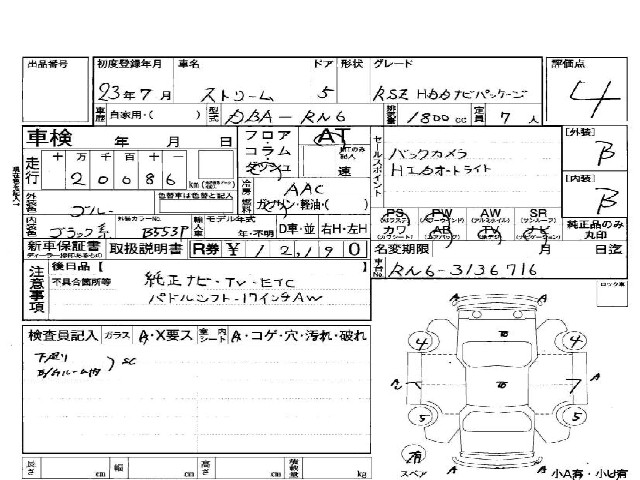 出品番号 初度登録年月 車名 ドア 形状 グレード 評価点
23年7月 ストリーム 5 RSZ HDDナビパッケージ 4
車歴 自家用・( ) 型式 DBA-RN6 排気量 1800cc 定員 7人
車検 年 月 日 フロア・コラム・ AT セールスポイント [外装] B
走行 十 万 千 百 十 一 ATのみ記入 速 バックカメラ
20686 km 冷房 AAC HIDオートライト [内装] B
外装色 ブルー 色替車は色替と記入 燃料 ガソリン・軽油・( )
PS PW AW SR
カワ AB TV ナビ 純正品のみ丸印
内装色 ブラック系 外装カラーNo. B553P 輸入車 モデル年式 年・不明 D車・並 右H・左H
新車保証書 取扱説明書 R券 ¥12,190 名変期限 月 日迄
注意事項 後日品【 車台No. RN6-3136716
不具合箇所等 純正ナビ・TV・ETC ロック車
パドルシフト・17インチAW
検査員記入 ガラス A・X要ス 室内シート A・コゲ・穴・汚れ・破れ A A
下廻り SC 4 4
A A 7 A
5 5
有
スペア A
長さ cm 幅 cm 高さ cm 積載量 kg 小A有・小U有